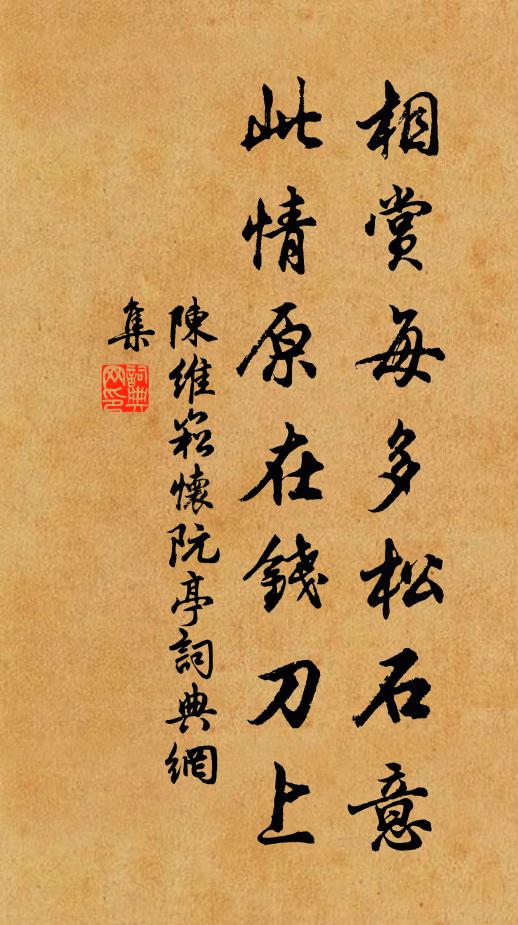 相賞每多松石意
此情原在錢刀上
陳維崧懷阮亭詞典網
集
詞典網印